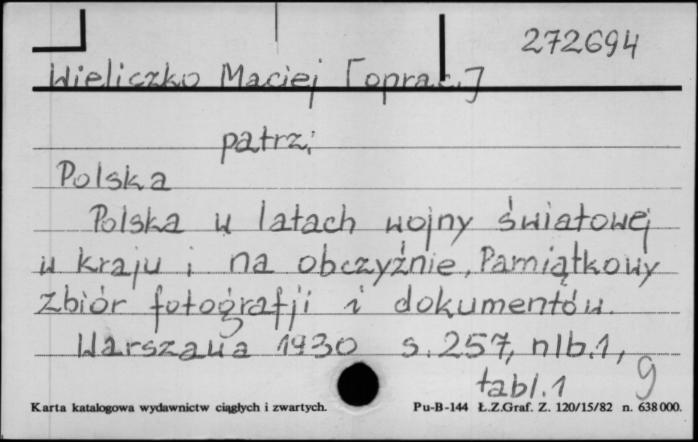 272694
Wieliczko Maciej [oprac.]
patrz:
Polska
Polska w latach wojny światowej
w kraju i na obczyźnie, Pamiątkowy
zbiór fotografji i dokumentów.
Warszawa 1930 s. 257, nlb. 1,
tabl. 1
g
Karta katalogowa wydawnictw ciągłych i zwartych. Pu-B-144 Ł.Z.Graf. Z. 120/15/82 n. 638000.